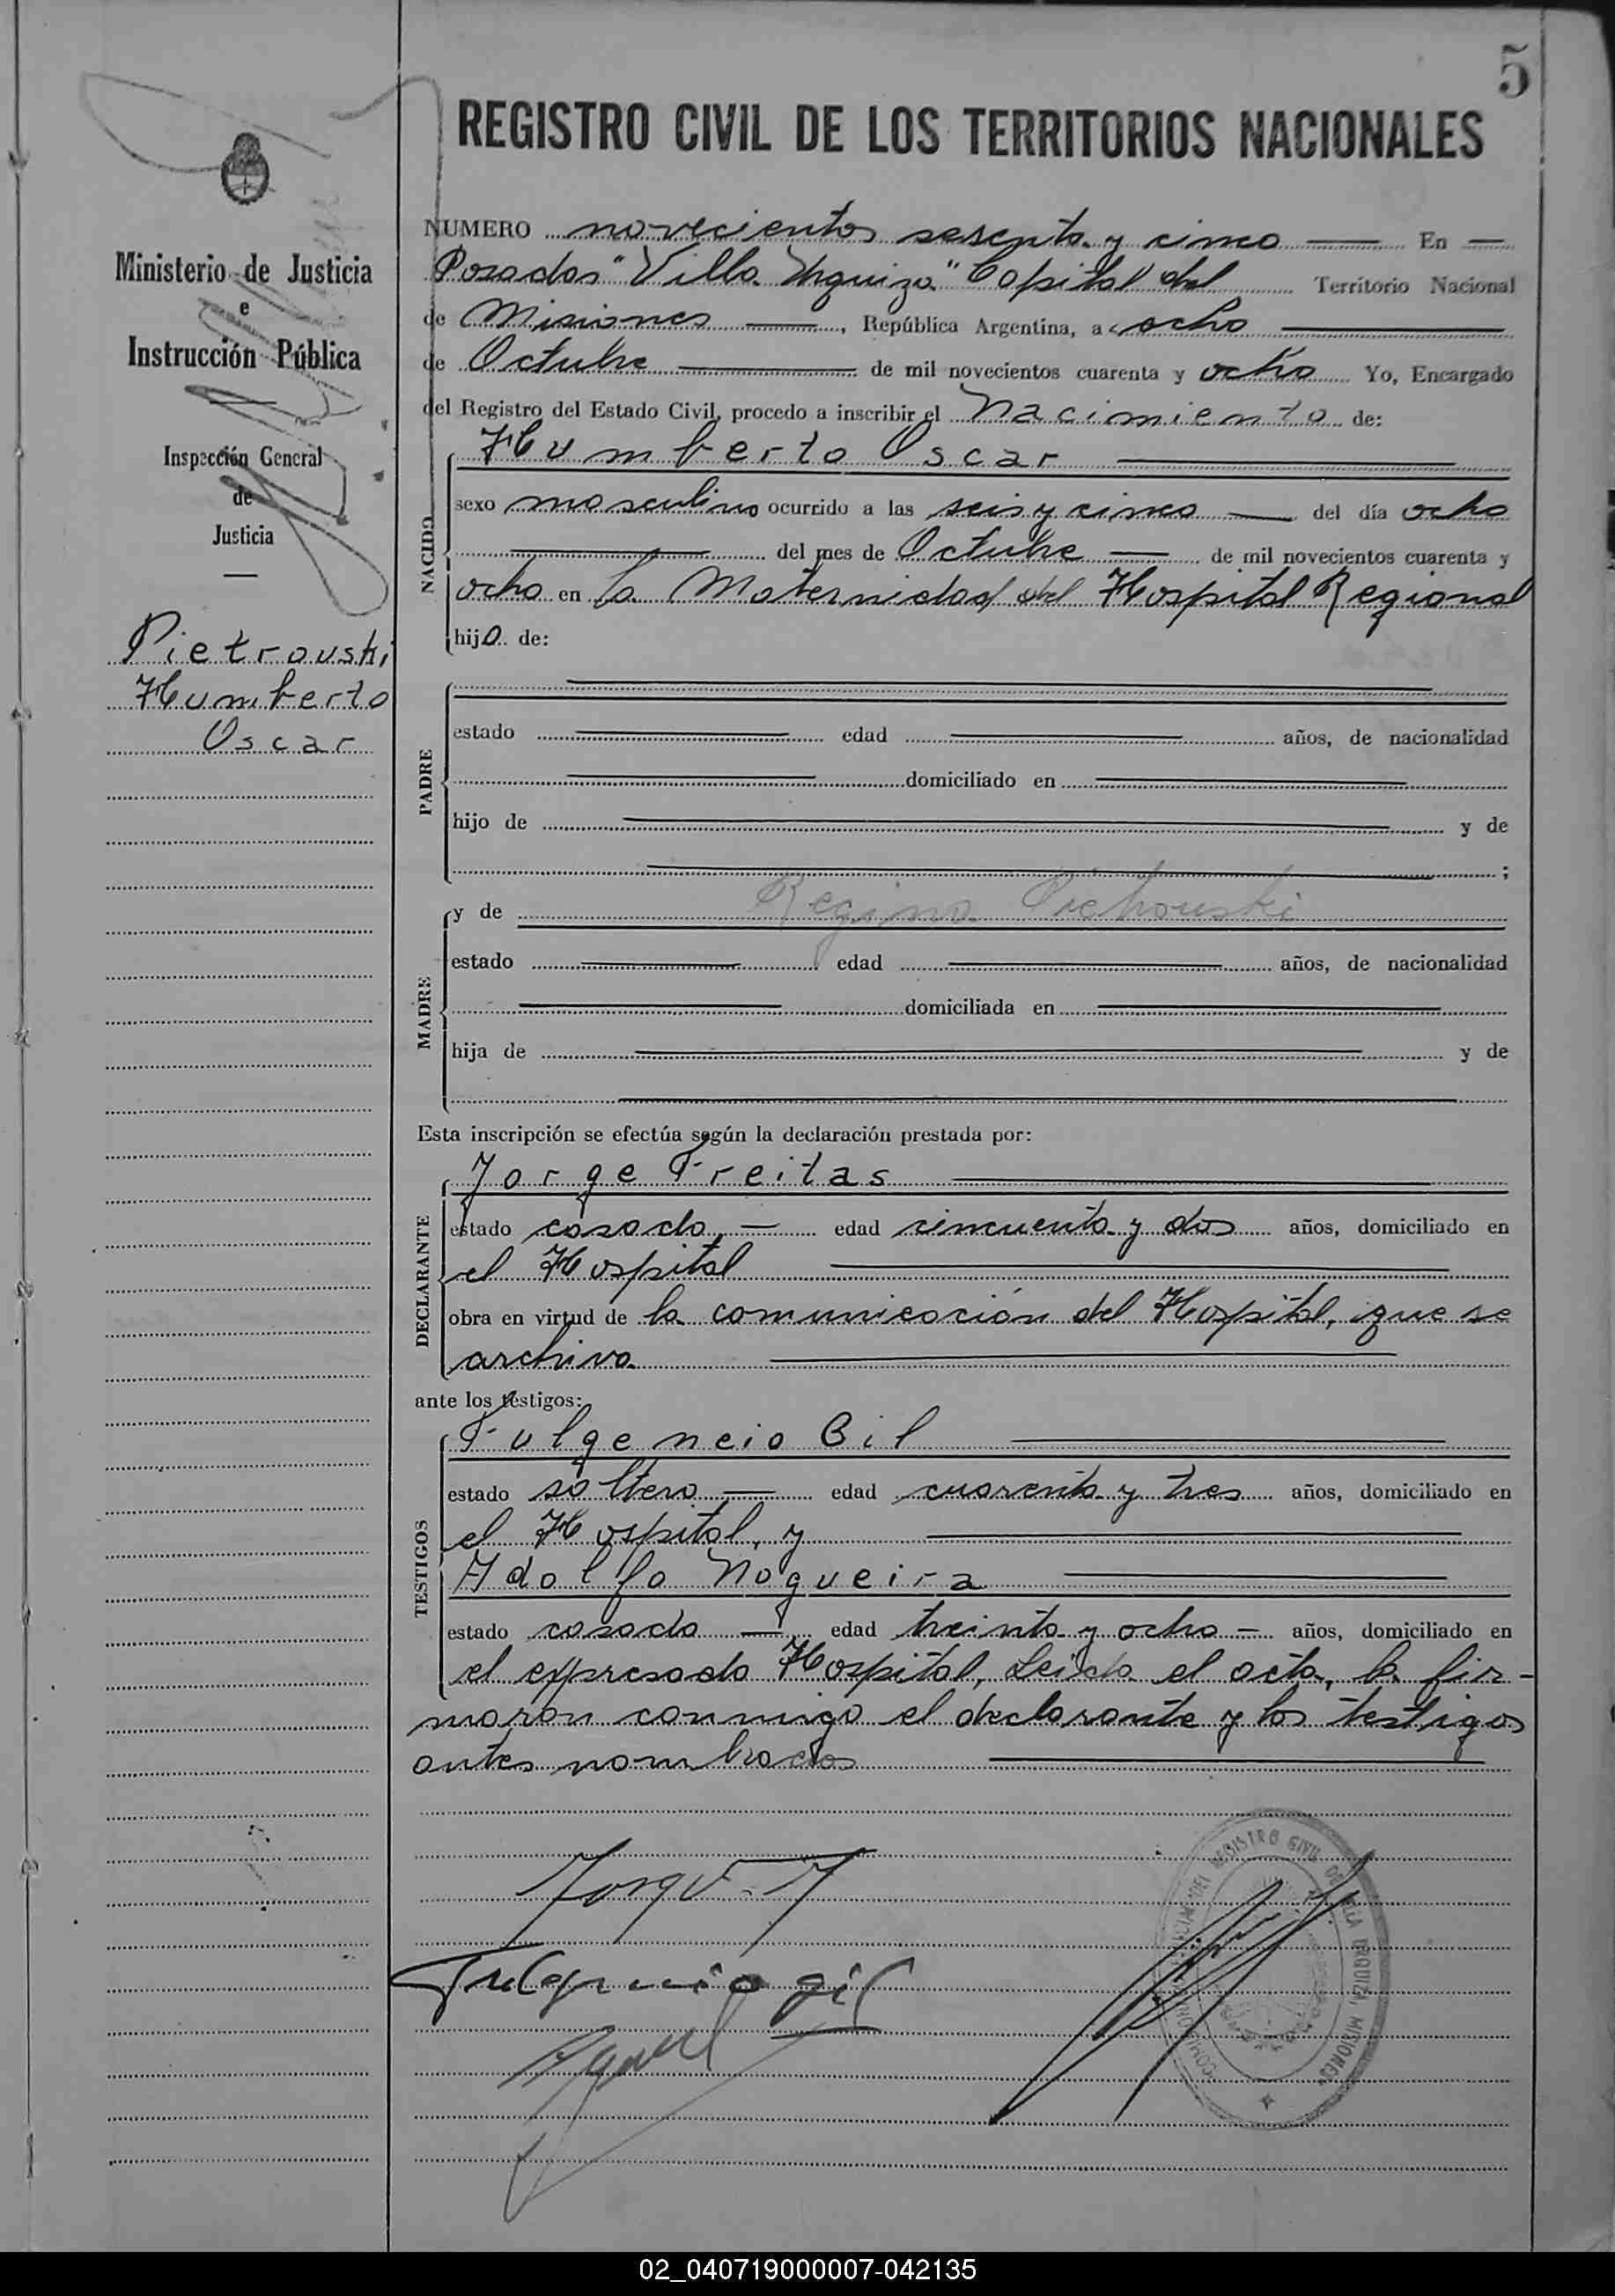 5
REGISTRO CIVIL DE LOS TERRITORIOS NACIONALES
Ministerio de Justicia
e
Instrucción Pública
Inspección General
de
Justicia
Pietrouski
Humberto
Oscar
NUMERO novecientos sesenta y cinco En
Posadas "Villa Urquiza" Capital del Territorio Nacional
de Misiones, República Argentina, a ocho
de Octubre de mil novecientos cuarenta y ocho Yo, Encargado
del Registro del Estado Civil, procedo a inscribir el Nacimiento de:
NACIDO
Humberto Oscar
sexo masculino ocurrido a las seis y cinco del día ocho
del mes de Octubre de mil novecientos cuarenta y
ocho en la Maternidad del Hospital Regional
hijo de:
PADRE
estado edad años, de nacionalidad
domiciliado en
hijo de y de
;
MADRE
y de Regina
estado edad años, de nacionalidad
domiciliada en
hija de y de
Esta inscripción se efectúa según la declaración prestada por:
DECLARANTE
Jorge Freitas
estado casado edad cincuenta y dos años, domiciliado en
el Hospital
obra en virtud de la comunicación del Hospital, que se
archiva
ante los testigos:
TESTIGOS
Fulgencio Gil
estado soltero edad cuarenta y tres años, domiciliado en
el Hospital, y
Adolfo Nogueira
estado casado edad treinta y ocho años, domiciliado en
el expresado Hospital, Leida el acta, la fir-
maron conmigo el declarante y los testigos
antes nombrados
Fulgencio gil
REGISTRO CIVIL DE VILLA URQUIZA, MISIONES
02_040719000007-042135